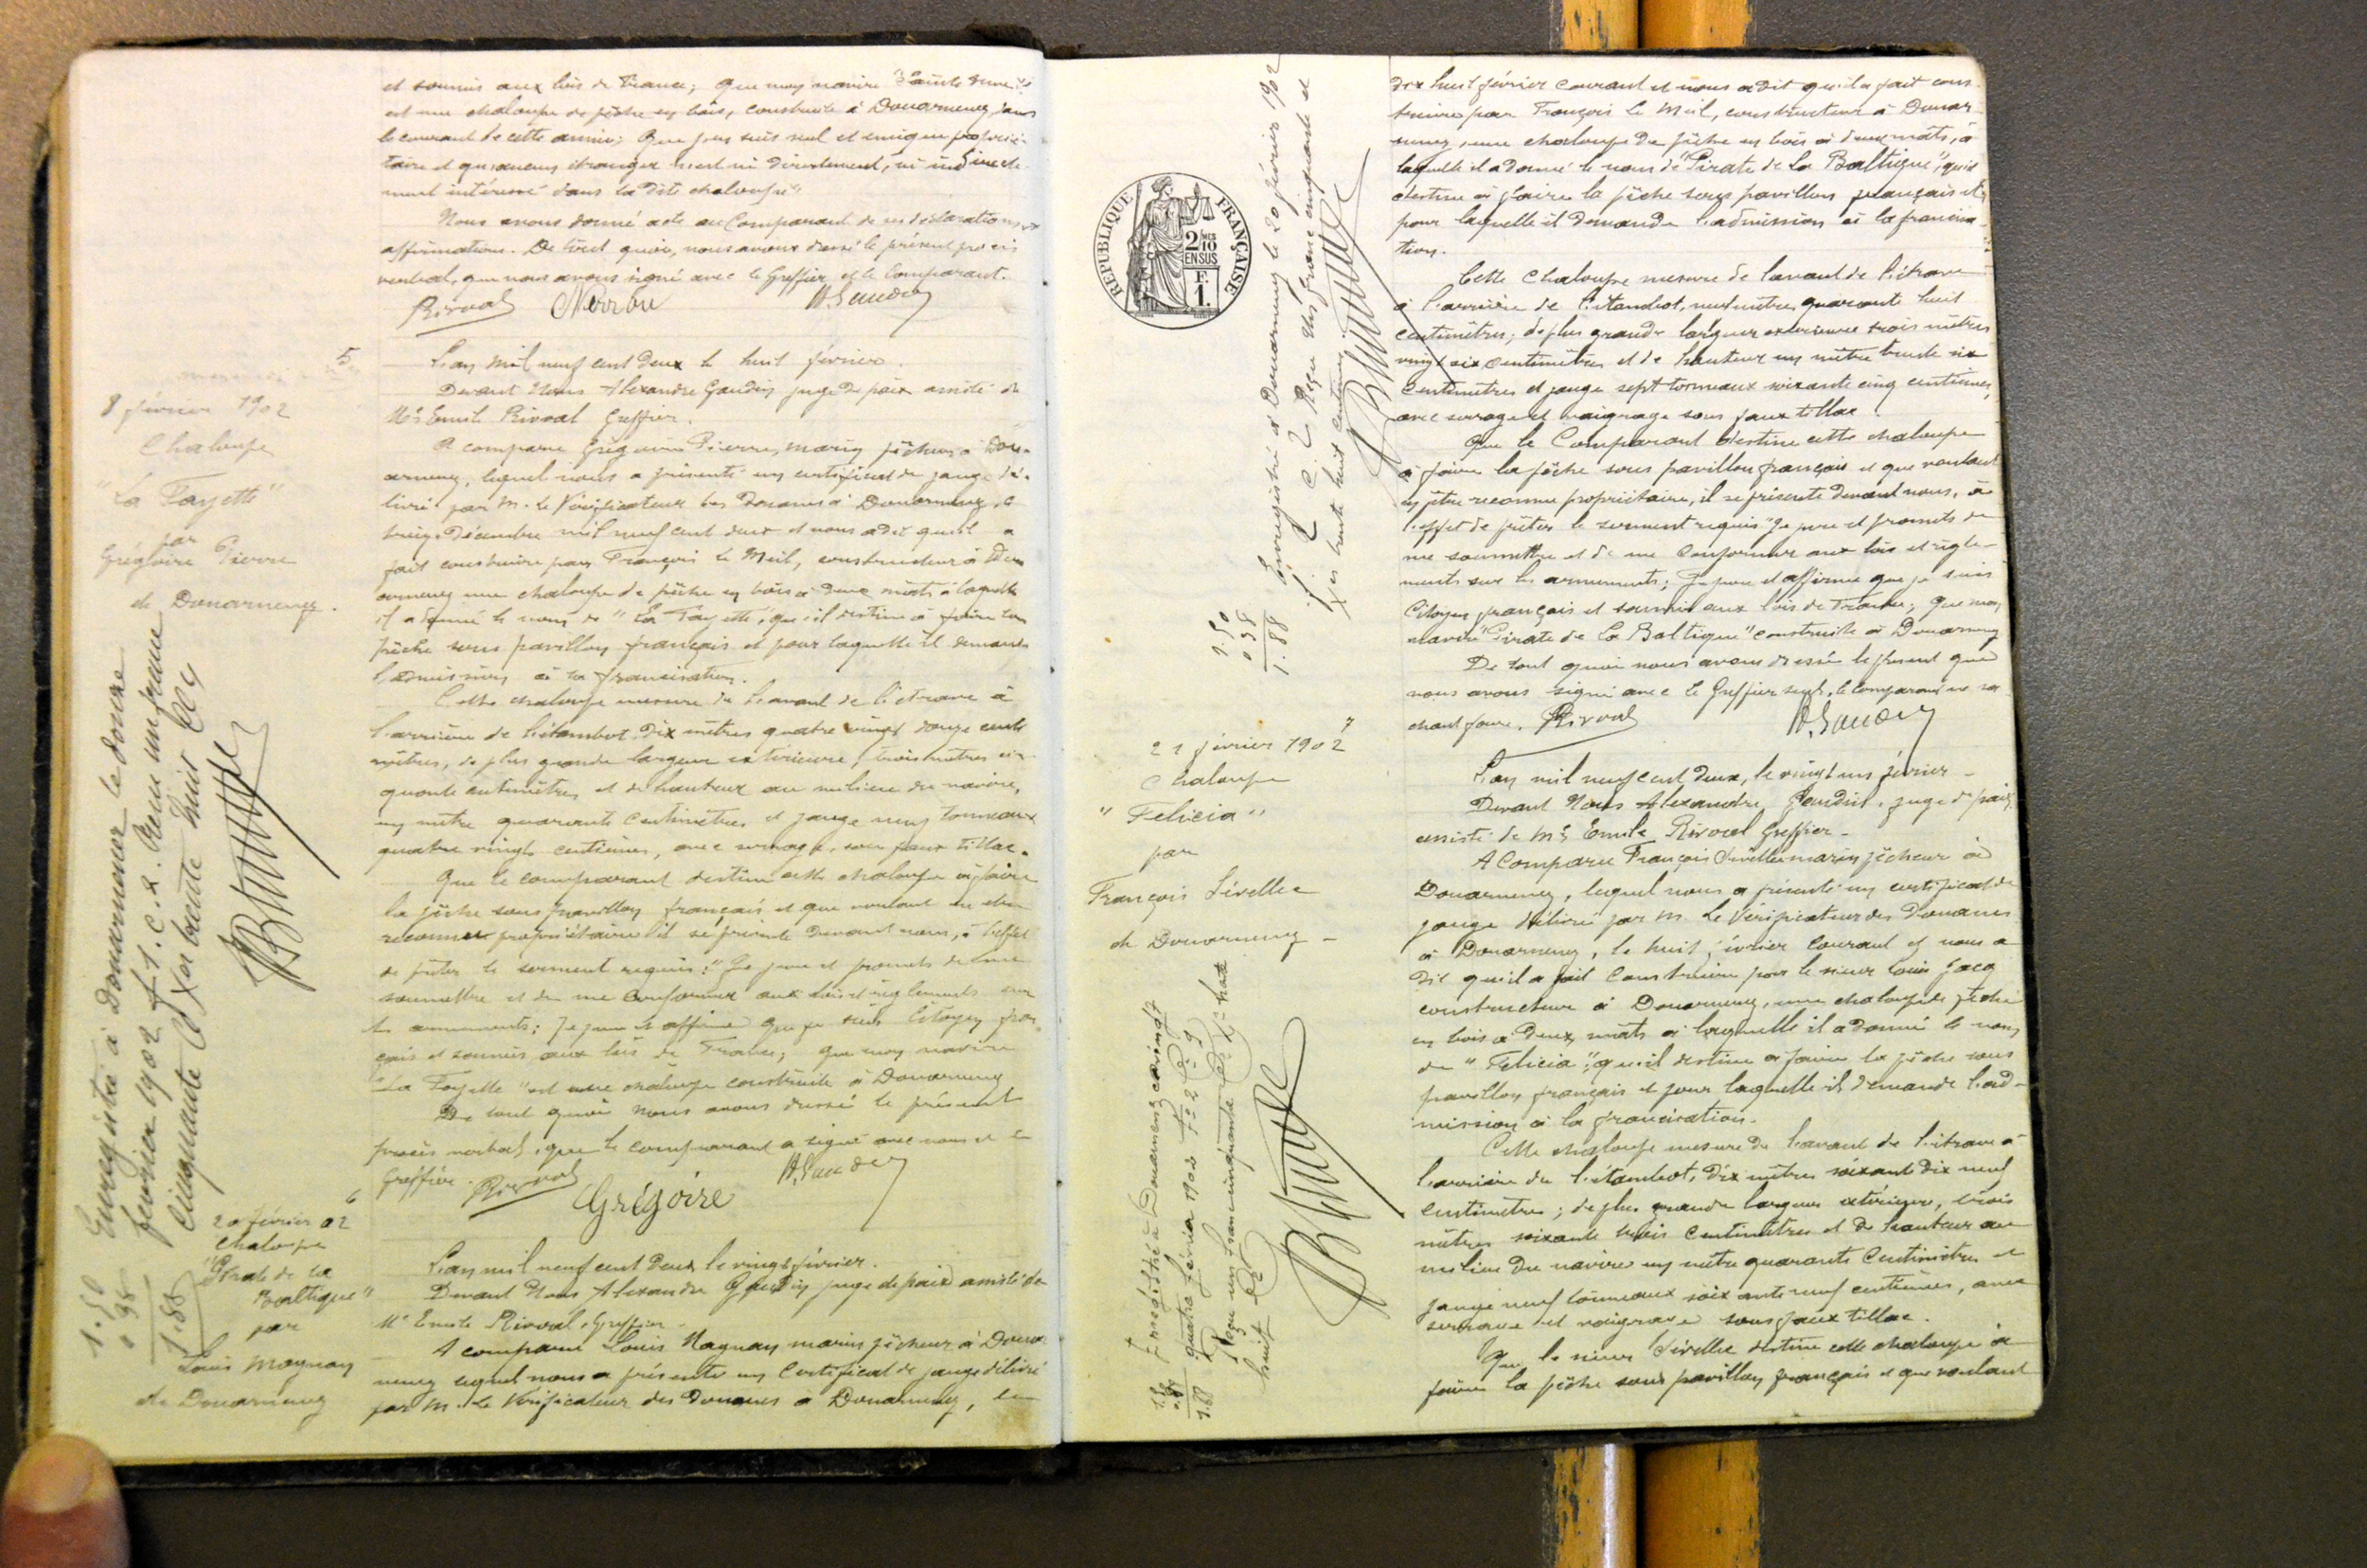 et soumis aux lois de France; que mon navire "Sainte Anne"
est une chaloupe de pêche en bois, construite à Douarnenez dans
le courant de cette année; Que j'en suis seul et unique proprié-
taire et qu'aucun étranger n'est ni directement, ni indirecte-
ment intéressé dans la dite chaloupe".
Nous avons donné acte au Comparant de ses déclarations et
affirmations. De tout quoi, nous avons dressé le présent procès
verbal, que nous avons signé avec le Greffier et le Comparant.
Rivoal
5
8 février 1902
Chaloupe
"La Fayette"
par
Grégoire Pierre
de Douarnenez.
L'an mil neuf cent deux le huit février.
Devant Nous Alexandre Gaudin juge de paix assisté de
Me Emile Rivoal Greffier.
A comparu Grégoire Pierre, marin pêcheur à Dou-
arnenez, lequel nous a présenté un certificat de jauge dé-
livré par M. le Vérificateur des Douanes à Douarnenez, le
Décembre mil neuf cent deux et nous a dit qu'il a
fait construire par François le Meil, constructeur à Dou
arnenez une chaloupe de pêche en bois à deux mâts à laquelle
il a donné le nom de "La Fayette", qu'il destine à faire la
pêche sous pavillon français et pour laquelle il demande
l'admission à la francisation.
Cette chaloupe mesure de l'avant de l'étrave à
l'arrière de l'étambot, dix mètres quatre vingt douze centi
mètres, de plus grande largeur extérieure, trois mètres cin
quante centimètres et de hauteur au milieu du navire,
un mètre quarante centimètres et jauge neuf tonneaux
quatre vingt centièmes, avec serrage, sous faux tillac.
Que le comparant destine cette chaloupe à faire
la pêche sous pavillon français et que voulant en être
reconnu propriétaire il se présente devant nous, à l'effet
de prêter le serment requis: "Je jure et promets de me
soumettre et de me conformer aux lois et règlements sur
les armements; Je jure et affirme que je suis Citoyen fran
çais et soumis aux lois de France; que mon navire
"La Fayette" est une chaloupe construite à Douarnenez
De tout quoi nous avons dressé le présent
procès verbal, que le comparant a signé avec nous et le
Greffier. Rivoal
Grégoire
A. Gaudin
Enregistré à Douarnenez le douze
février 1902 f. 1. c. 2. Reçu un franc
cinquante Dx trente huit
1.50
0.38
1.88
6
20 février 02
Chaloupe
"Pirate de la
Baltique"
par
Louis Magnan
de Douarnenez
L'an mil neuf cent deux le vingt février.
Devant Nous Alexandre Gaudin juge de paix assisté de
Me Emile Rivoal, Greffier.
A comparu Louis Magnan marin pêcheur à Douar
nenez lequel nous a présenté un Certificat de jauge délivré
par M. le Vérificateur des Douanes à Douarnenez, le
REPUBLIQUE FRANÇAISE
2 MES 10
EN SUS
F.
1.
Enregistré à Douarnenez le 20 février 1902
Reçu un franc cinquante et
trente huit centimes
1.50
0.38
1.88
dix huit février courant et nous a dit qu'il a fait cons-
truire par François le Meil, constructeur à Douar-
nenez, une chaloupe de pêche en bois à deux mâts, à
laquelle il a donné le nom de "Pirate de la Baltique", qu'il
destine à faire la pêche sous pavillon français et
pour laquelle il demande l'admission à la francisa-
tion.
Cette Chaloupe mesure de l'avant de l'étrave
à l'arrière de l'étambot, neuf mètres quarante huit
centimètres; de plus grande largeur extérieure trois mètres
vingt six centimètres et de hauteur un mètre trente six
centimètres et jauge sept tonneaux soixante cinq centièmes,
avec serrage et vaigrage sous faux tillac.
Que le Comparant destine cette chaloupe
à faire la pêche sous pavillon français et que voulant
en être reconnu propriétaire, il se présente devant nous, à
l'effet de prêter le serment requis "Je jure et promets de
me soumettre et de me conformer aux lois et règle-
ments sur les armements; Je jure et affirme que je suis
Citoyen français et soumis aux lois de France; que mon
navire "Pirate de la Baltique" construite à Douarnenez
De tout quoi nous avons dressé le présent que
nous avons signé avec le Greffier seul, le comparant ne sa-
chant faire. Rivoal
A. Gaudin
7
21 février 1902
Chaloupe
"Felicia"
par
François
de Douarnenez -
L'an mil neuf cent deux, le vingt un février -
Devant Nous Alexandre Gaudin, juge de paix
assisté de Me Emile Rivoal Greffier -
A Comparu François marin pêcheur à
Douarnenez, lequel nous a présenté un certificat de
jauge délivré par M. Le Vérificateur des Douanes
à Douarnenez, le huit février courant et nous a
dit qu'il a fait construire par le sieur Louis Jacq
constructeur à Douarnenez, une chaloupe de pêche
en bois à deux mâts à laquelle il a donné le nom
de "Felicia", qu'il destine à faire la pêche sous
pavillon français et pour laquelle il demande l'ad-
mission à la francisation.
Cette chaloupe mesure de l'avant de l'étrave à
l'arrière de l'étambot, dix mètres soixante dix neuf
centimètres; de plus grande largeur extérieure, trois
mètres soixante trois centimètres et de hauteur au
milieu du navire un mètre quarante centimètres et
jauge neuf tonneaux soixante neuf centièmes, avec
serrage et vaigrage sous faux tillac.
Que le sieur destine cette chaloupe à
faire la pêche sous pavillon français et que voulant
Enregistré à Douarnenez le vingt
quatre février 1902 Fo 2 Co 9
Reçu un franc cinquante Dx trente
huit
1.50
0.38
1.88